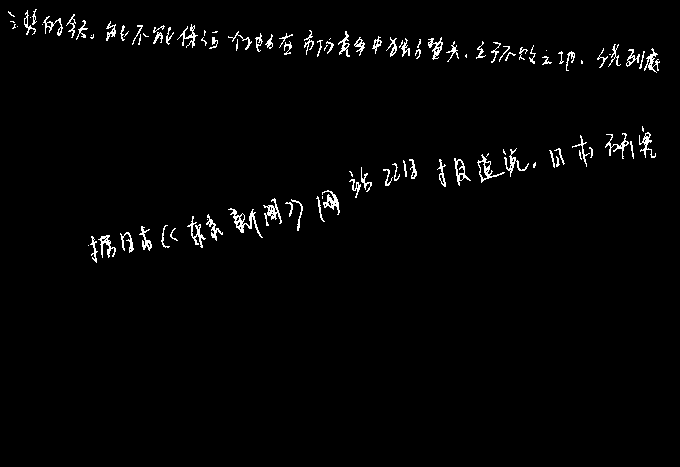 主势的今天，能不能保证个地方在市场竞争中独占鳌头，立于不败之地，
据日本《东京新闻》网站22日报道说，日本研究